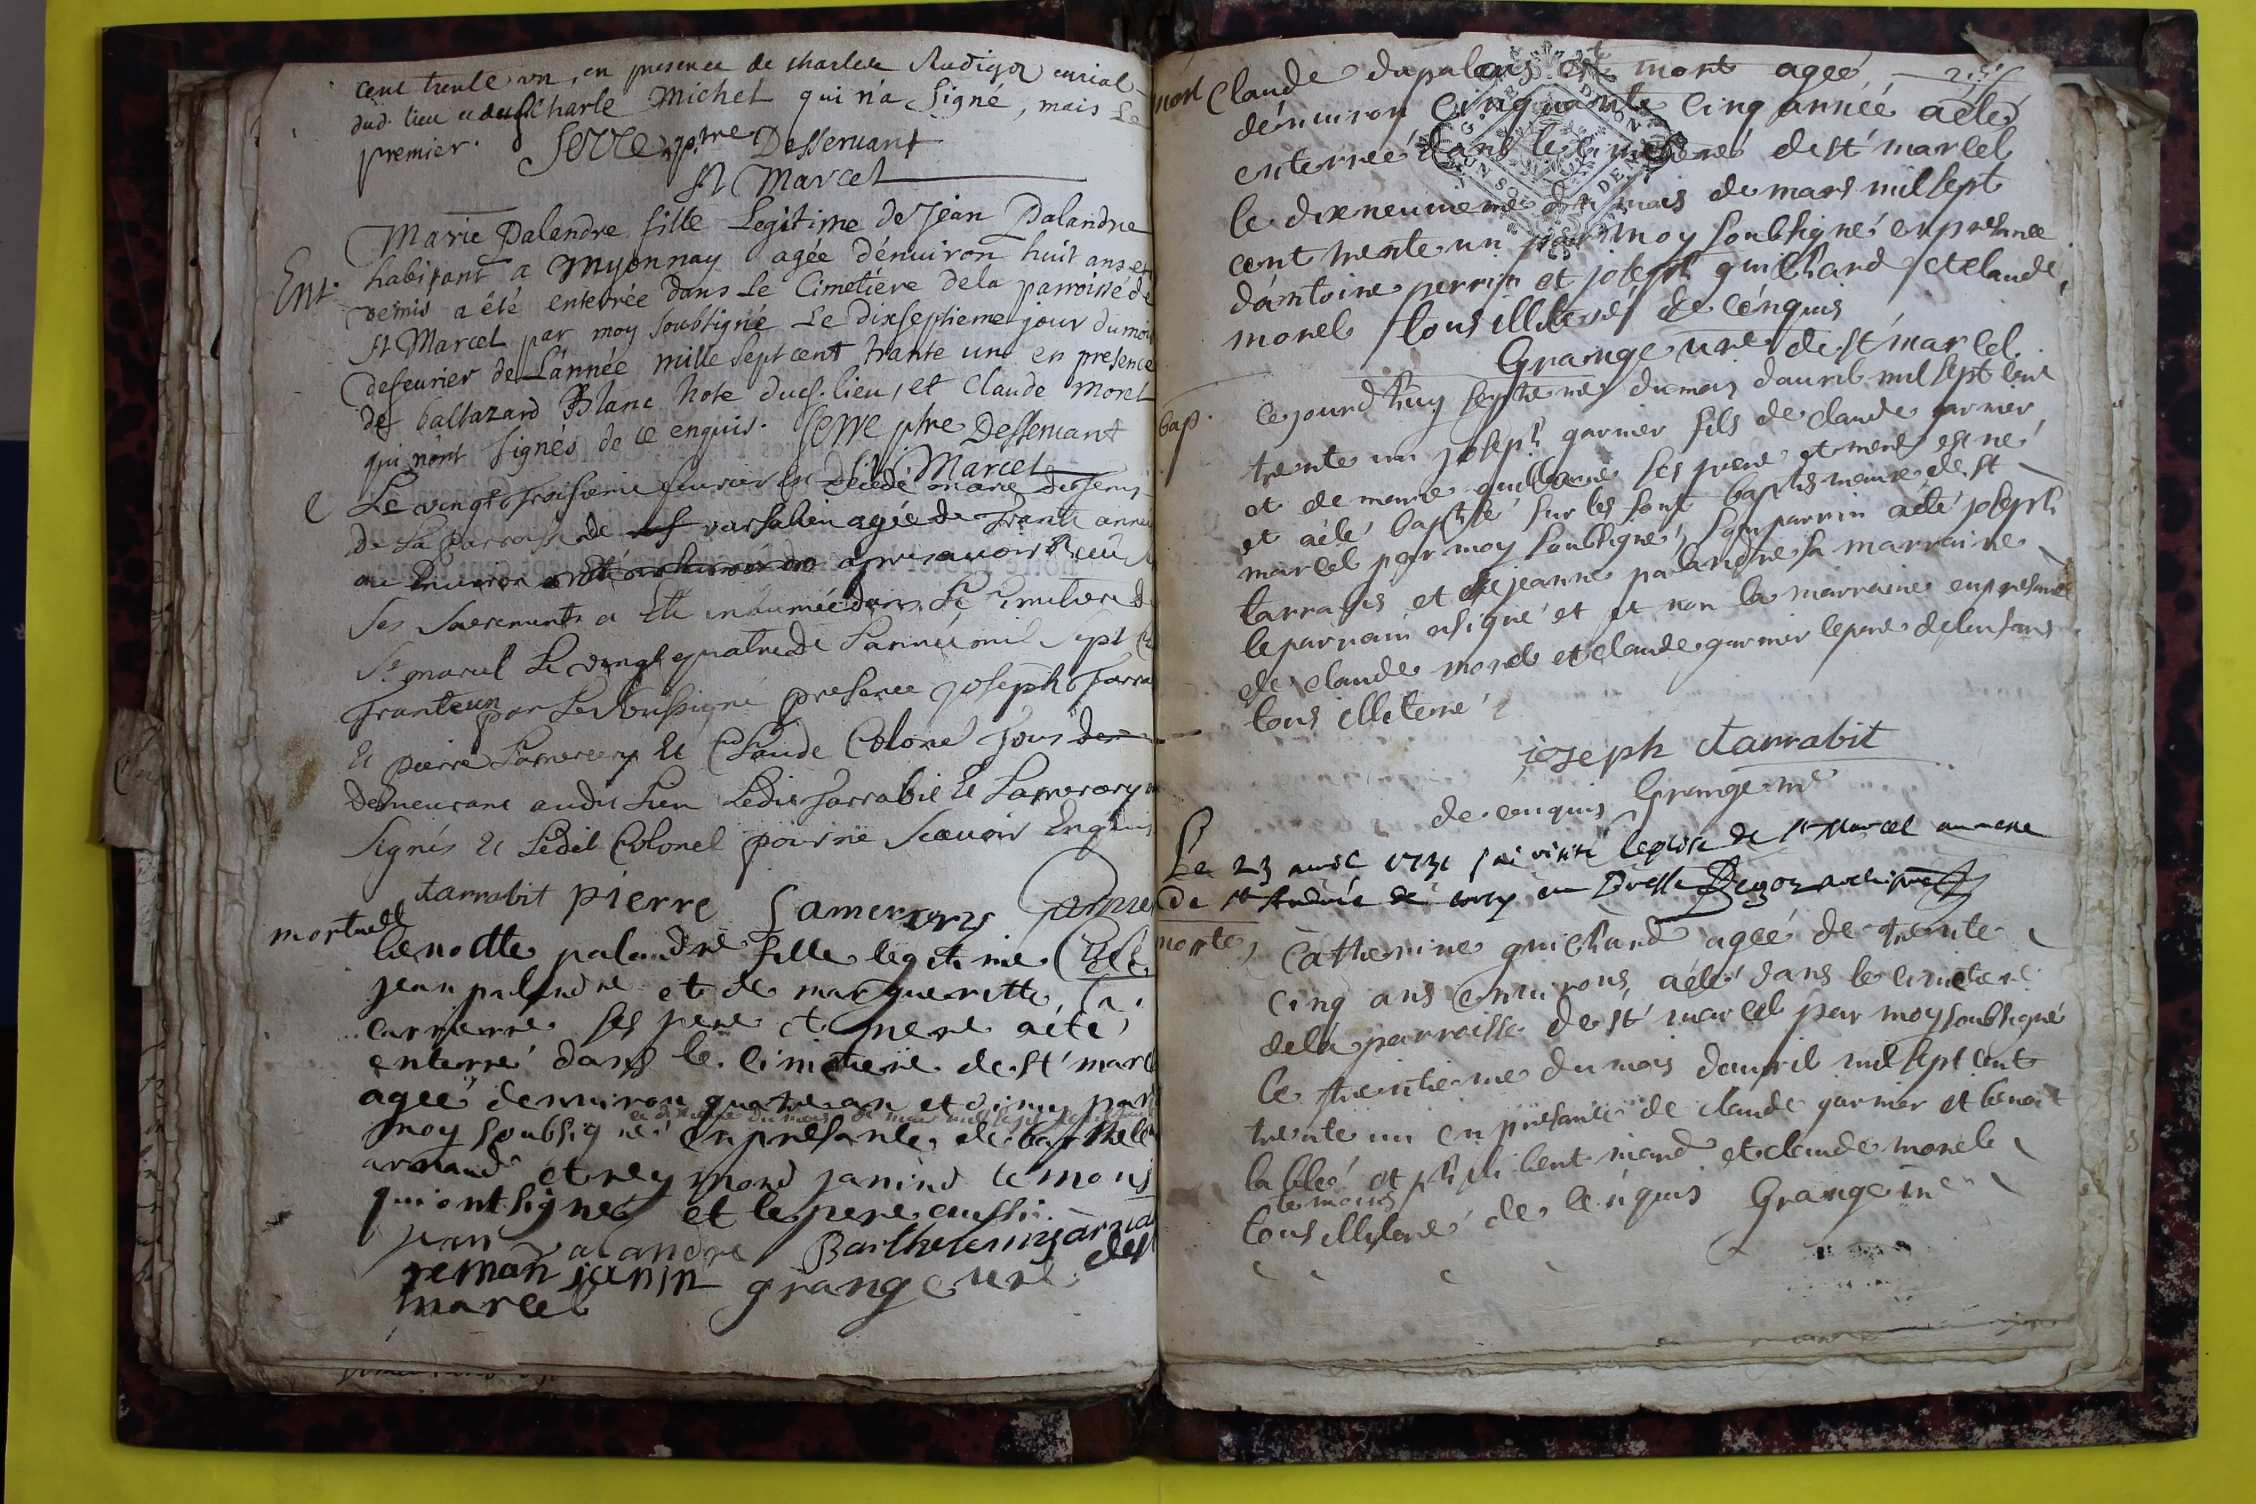 cent trente un, en presence de charle Rudigoz curial
dud. lieu et de Charle Michel qui n'a signé, mais le
premier. Serre ptre Desservant
St Marcel
Ent.
Marie Palandre fille Legitime de Jean Palandre
habitant a Myonnay agée d'enuiron huit ans et
demis a été enterrée dans Le Cimetiére dela parroisse de
St Marcel par moy soubsigné Le dixseptieme jour du moi
defeurier de L'année mille sept cent trante un en presence
de baltazard Blanc hote dud. lieu, et Claude Morel
qui n'ont signés de ce enquis. Serre ptre Desservant
St. Marcel
Le vingt troisieme feurier Est Décédé marie
De La parroisse de agée de Trante année
ou Enuiron apres auoir Receu
Ses Sacrements a Eté inhumée dans Le Cimetiere de
St marcel Le vingt quatre de Lannée mil Sept Ce
Trante un par Le Soussigné presence joseph Tarra
Et pierre Lamercery Et Claude Colonel Tous
Demeurant audit Lieu Ledit Tarrabit Et Lamercery
Signés Et Ledit Colonel pour ne Scauoir Enquis
tarrabit pierre Lamercery
mortuell
benoitte palandre fille legitime de
jean palandre et de margueritte
carrierre ses pere et mere aété
enterré dans le cimetiere de st marc
ageé denuiron quatre an et dimy par
moy soubsigné en presante de barthelem
arnaud et reymond janind temoins
qui ont signes et le pere aussi
jean Palandre Barthelemy arna
reman janin grange curé de st
marcel
mort Claude dupalais est mort ageé
dénuiron cinquante cinq année aété
enterreé dans le cimetiere de st marcel
le dixneuuieme du mois de mars mil sept
cent trente un par moy soubsigné en presence
d'antoine perrin et joseph guichard et claude
morel tous illiteré de cénquis
Grange curé de st marcel
bap.
Ce jourdhuy septieme du mois dauril mil sept cent
trente un joseph garnier fils de claude garnier
et de marie guillerme ses pere et mere est né
et aété baptisé sur les font baptismaux de st
marcel par moy soubsigné, son parrin aété joseph
tarrabis et jeanne palandre sa marraine
le parrain asigné et et non la marraine en presance
de claude morel et claude garnier le pere delenfans
tous illiteré
joseph tarrabit
de cenquis Grange curé
Le 23 auril 1731 j'ai visité leglise de St Marcel annexe
de St André de Corcy en Bresse
morte
Catherine guichard ageé de trente
cinq ans enuirons, aété dans le cimetiere
dela parroisse de st marcel par moy soubsigné
le trentieme du mois dauril mil sept cent
trente un en presance de claude garnier et benoit
lablé et claude morel
temoins
tous illiteré de cenquis Grange curé